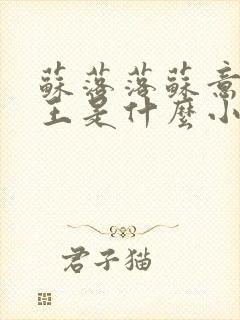 蘇落落蘇意
王是什麼小
君子猫